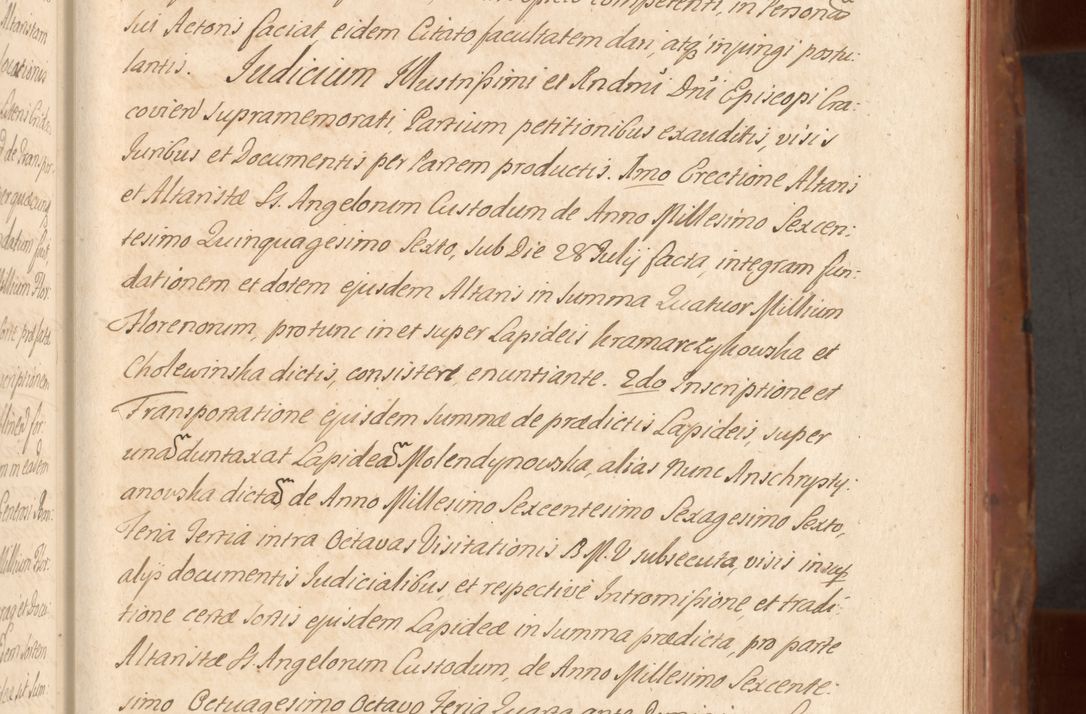 competenti, in Persona
sui Actoris faciat, eidem Citato facultatem dari, atq injungi postu:
lantis. Judicium Illustrissimi et Rndmi Dni Episcopi Cra:
covien supramemorati, Partium petitionibus exauditis, visis
Juribus et Documentis per Partem productis. 1mo Erectione Altaris
et Altaristæ SS. Angelorum Custodum de Anno Millesimo Sexcen:
tesimo Quinquagesimo Sexto, sub Die 28 Julij facta, integram fun:
dationem et dotem ejusdem Altaris in summa Quatuor Millium
Florenorum, pro tunc in et super Lapideis Kramarczykowska et
Cholewinska dictis, consistere, enuntiante. 2do Inscriptione et
Transportatione ejusdem summæ de prædictis Lapideis, super
unam duntaxat Lapideam Molendynowska, alias nunc Anschrypty:
anovska dictam de Anno Millesimo Sexcentesimo Sexagesimo Sexto,
Feria Tertia intra Octavas Visitationis B.M.V subsecuta, visis insup
alijs documentis Judicialibus, et respective Intromissione, et tradi:
tione certæ sortis ejusdem Lapideæ in summa prædicta, pro parte
Altaristæ SS. Angelorum Custodum, de Anno Millesimo Sexcente:
simo Octuagesimo Octavo Feria Quarta ante